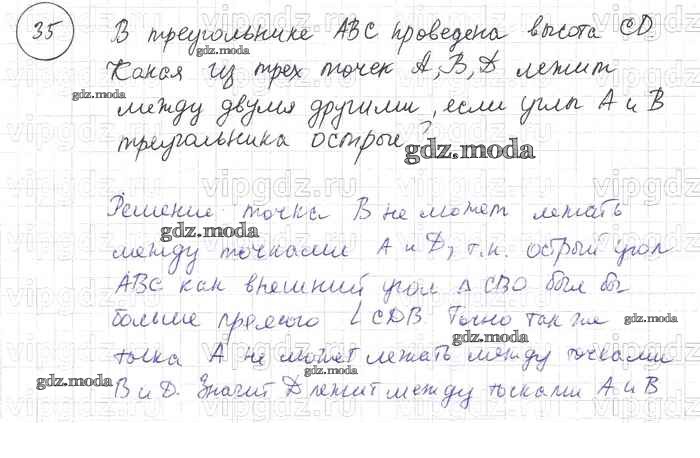 35
В треугольнике ABC проведена высота CD
Какая из трех точек A, B, D лежит
между двумя другими, если углы A и B
треугольника острые?
Решение точка B не может лежать
между точками A и D, т.к. острый угол
ABC как внешний угол △ CBD был бы
больше прямого ∠ CDB Точно так же
точка A не может лежать между точками
B и D. Значит D лежит между точками A и B
gdz.moda
gdz.moda
gdz.moda
gdz.moda
gdz.moda
gdz.moda
gdz.moda
vipgdz.ru